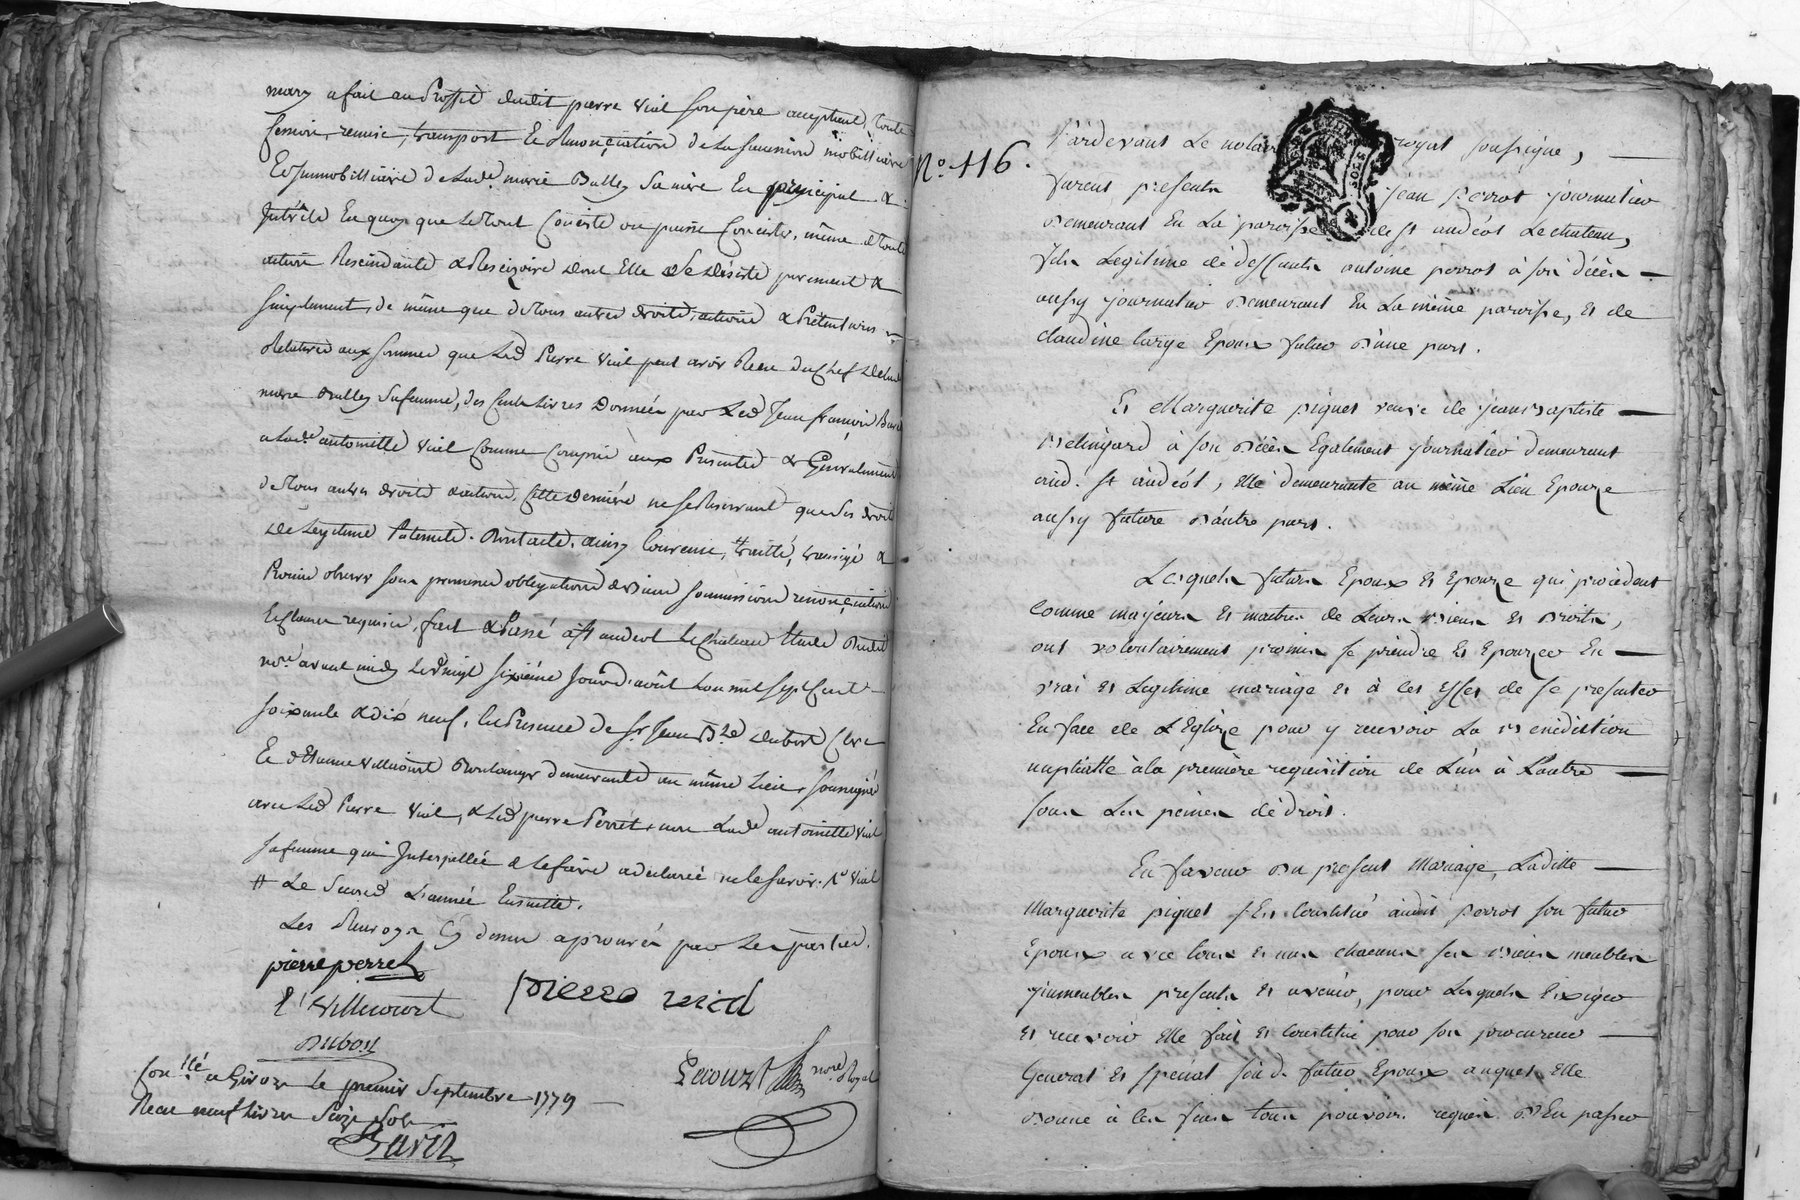 mary a fait au Proffit dudit pierre vial son père acceptant, toute
Cession, remise, transport & Renonciation de la succession mobilliaire
Et Immobilliaire de lade. marie Bully sa mère En principal &
Intérêts En quoy que le tout Consiste ou puisse Consister, même de toute
action Rescindante & Rescizoire dont Elle se désiste purement &
simplement, de même que de tous autres droits, actions & Prétentions
Relatives aux sommes que led Pierre Vial peut avoir Recu du Chef de lade
marie Bully sa femme, des Cents Livres Donnée par Led Jean françois
a lade antoinette Vial Comme Compris aux Présentes & Généralement
de tous autres droits & actions, Cette dernière ne se Réservant que ses droits
de Legitime Paternelle. Dont acte, ainsy Convenu, # traitté, transigé &
Promis observer sous promesses obligations de biens soumissions renonciations
Et Clauses requises, fait & Passé à st andeol le Chateau Etude dudit
nore. avant midy Le vingt sixième Jour d'août L'an mil sept Cent
soixante & dix neuf, En Présence de sr. Jean Bte Dubost Clerc
Et d'Etienne Villecourt Boulanger demeurants au même Lieu, soussignés
avec Led Pierre Vial, & Led pierre Perret, non Lade antoinette Vial
sa femme qui Interpellée de le faire a déclaré ne le savoir. 1º Vial
# Le Second L'année Ensuitte.
Les Renvoys Cy dessus approuvés par les parties.
pierre perret
E. Villecourt
pierre viel
Dubost
nore. Royal
Con.llé a Givors le premier Septembre 1779
Recu neuf livres Seize Sols
Nº. 116.
Pardevant Le notaire royal soussigné,
furent présents jean perrot journalier
demeurant En La paroisse de st andéol Le chateau,
fils Legitime de deffunts antoine perrot à son décès
aussy journalier demeurant En La même paroisse, et de
claudine large Epoux futur d'une part.
Et Marguerite piquet veuve de jean Baptiste
à son décès Egalement journalier demeurant
aud. st andéol, Elle demeurante au même Lieu Epouze
aussy future d'autre part.
Lesquels futurs Epoux et Epouze qui procèdent
comme majeurs et maitres de Leurs Biens et Droits,
ont volontairement promis se prendre et Epouzer En
vrai et Legitime mariage et à cet effet de se présenter
En face de L'Eglize pour y recevoir La Bénédiction
nuptialle à la première requisition de L'un à L'autre
sous Les peines de droit.
En faveur du présent Mariage, Laditte
Marguerite piquet s'Est constitué audit perrot son futur
Epoux avec tous et uns chacuns ses Biens meubles
jmmeubles présents et avenir, pour Lesquels Exiger
et recevoir Elle fait et constitue pour son procureur
Général et spécial sond. futur Epoux auquel Elle
Donne à ces fins tous pouvoirs requis D'En passer